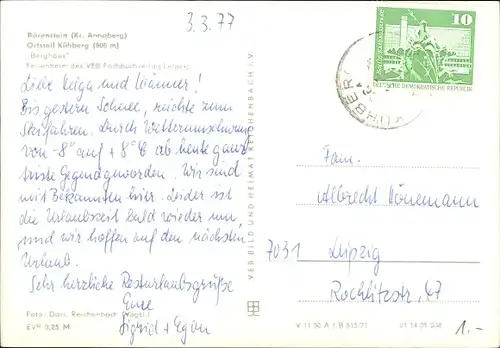 3.3.77
Bärenstein (Kr. Annaberg)
Ortsteil Kühberg (800 m)
„Berghaus“
Ferienheim des VEB Fachbuchverlag Leipzig
Liebe Helga und Männer!
Bis gestern Schnee, reichte zum
Skifahren. Durch Wetterumschwung
von -8° auf +8°C ab heute ganz
triste Gegend geworden. Wir sind
mit Bekannten hier. Leider ist
die Urlaubszeit bald wieder um,
und wir hoffen auf den nächsten
Urlaub.
Sehr herzliche Resturlaubsgrüße
Eure
Sigrid + Egon
Foto: Darr, Reichenbach (Vogtl.)
EVP 0,25 M
VEB BILD UND HEIMAT REICHENBACH I. V.
10
DEUTSCHE DEMOKRATISCHE REPUBLIK
KÜHBERG
Fam.
Albrecht Hönemann
7031 Leipzig
Rochlitzstr. 47
V 11 50 A 1 B
01 14 01 1.-